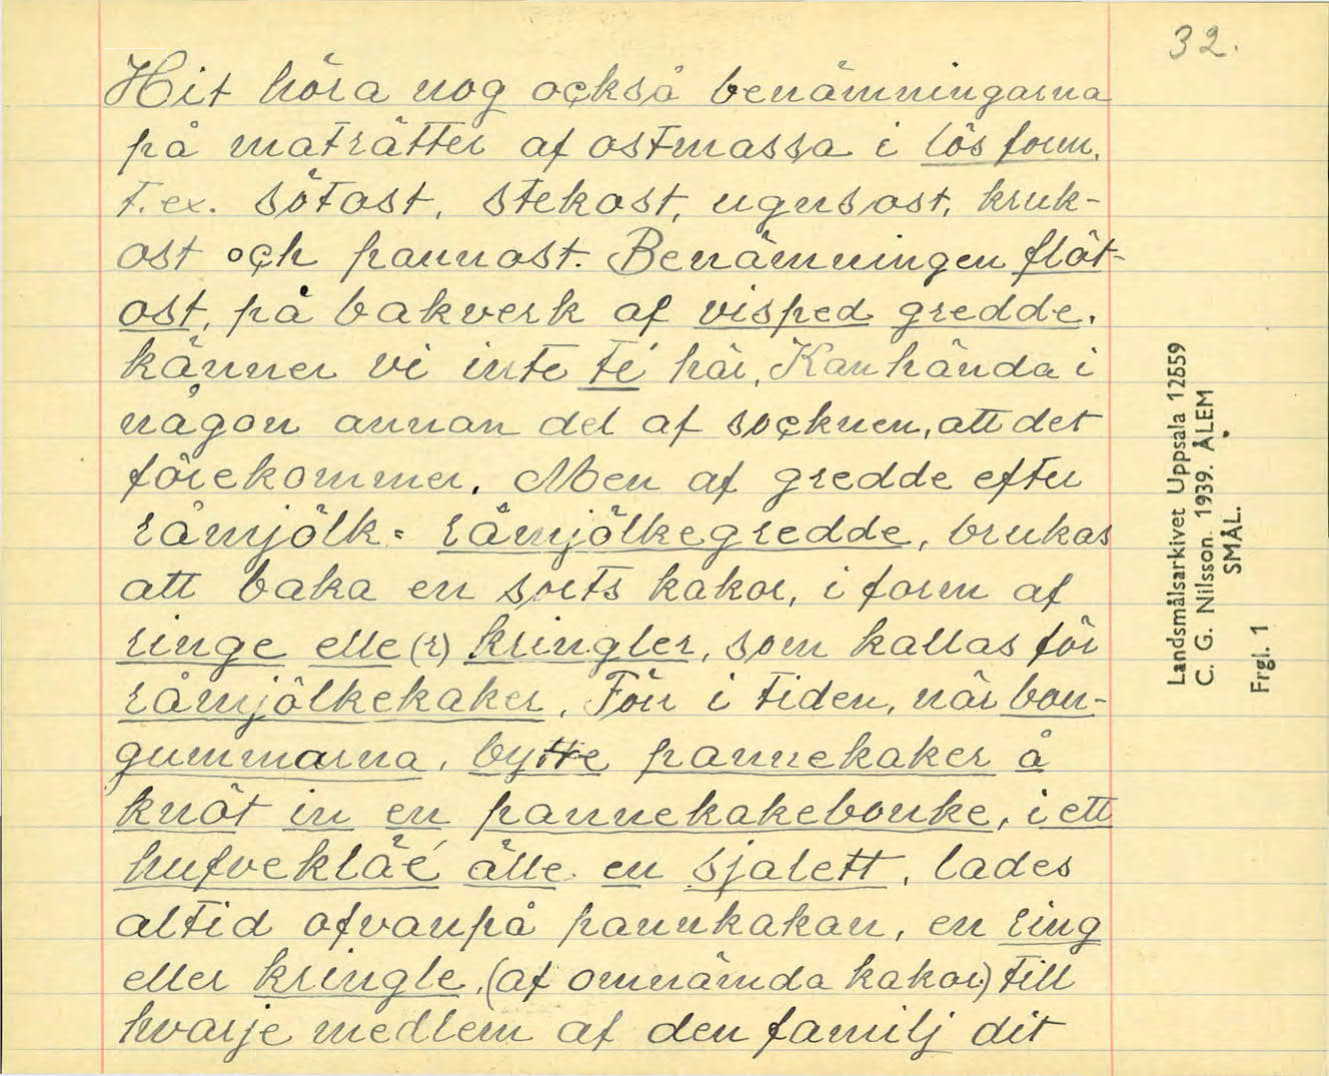 32.
Hit höra nog också benämningarna
på maträtter af ostmassa i lös form,
t.ex. sötost, stekost, ugnsost, kruk-
ost och pannost. Benämningen flöt-
ost, på bakverk af visped gredde,
känner vi inte te' här, Kanhända i
någon annan del af socknen, att det
förekommer. Men af gredde efter
råmjölk = råmjölkegredde, brukas
att baka en sorts kakor, i form af
ringe elle(r) kringler, som kallas för
råmjölkekaker. Förr i tiden, när bon-
gummarna, bytte pannekaker å
knöt in en pannekakebonke, i ett
hufvekläe' älle en sjalett, lades
altid ofvanpå pannkakan, en ring
eller kringle, (af omnämda kakor) till
hvarje medlem af den familj dit
Landsmålsarkivet Uppsala 12659
C. G. Nilsson. 1939. ÅLEM
SMÅL.
Frgl. 1